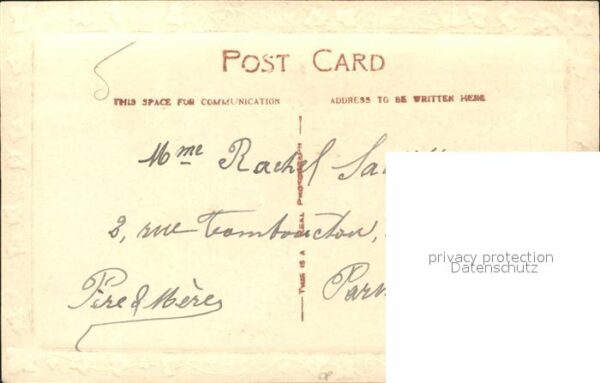 5
POST CARD
THIS SPACE FOR COMMUNICATION
ADDRESS TO BE WRITTEN HERE
THIS IS A REAL PHOTOGRAPH
Mme Rachel
2, rue Tombouctou,
Père & Mère
privacy protection
Datenschutz